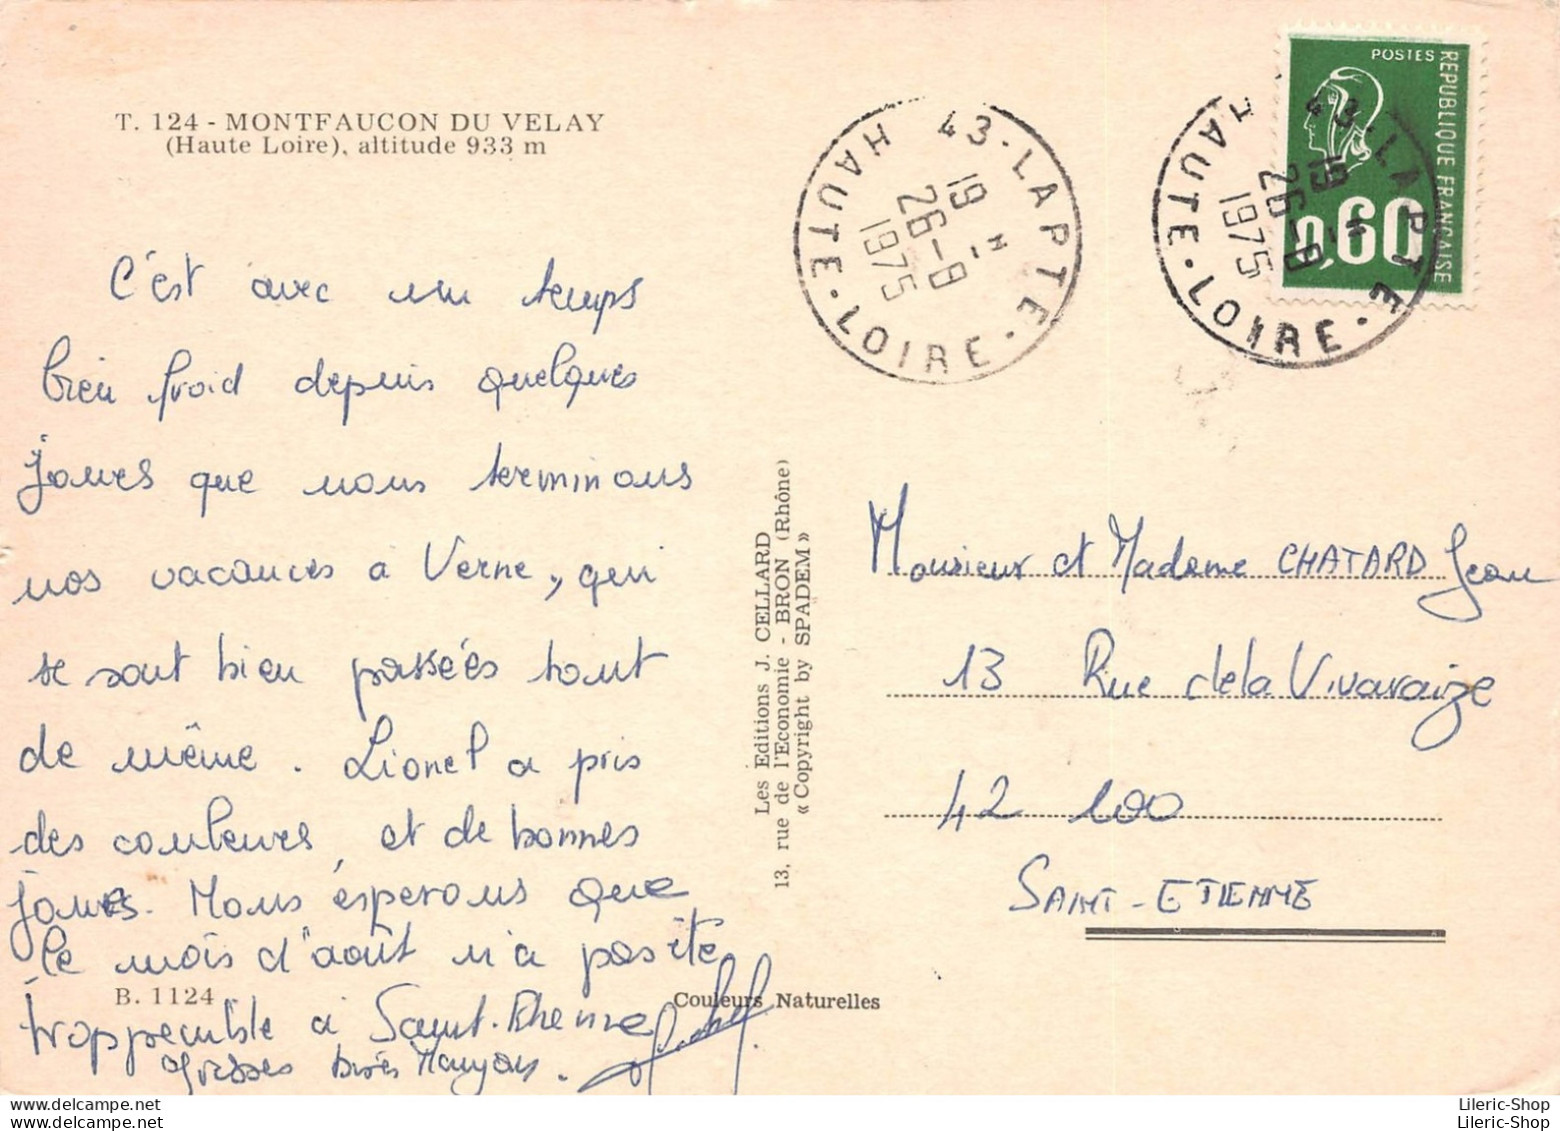 T. 124 - MONTFAUCON DU VELAY
(Haute Loire), altitude 933 m
C'est avec un temps
bien froid depuis quelques
jours que nous terminons
nos vacances à Verne, qui
se sont bien passées tout
de même. Lionel a pris
des couleurs, et de bonnes
joues. Nous espérons que
le mois d'août n'a pas été
trop pénible à Saint-Etienne
Grosses bises
B. 1124
Couleurs Naturelles
Les Editions J. CELLARD
13, rue de l'Economie - BRON (Rhône)
« Copyright by SPADEM »
43-LAPTE
HAUTE-LOIRE
19 H
26-8
1975
43-LAPTE
HAUTE-LOIRE
19 H
26-8
1975
POSTES
REPUBLIQUE FRANÇAISE
0,60
Monsieur et Madame CHATARD Jean
13 Rue de la Vivaraize
42 100
SAINT-ETIENNE
Lileric-Shop
Lileric-Shop
Lileric-Shop
Lileric-Shop